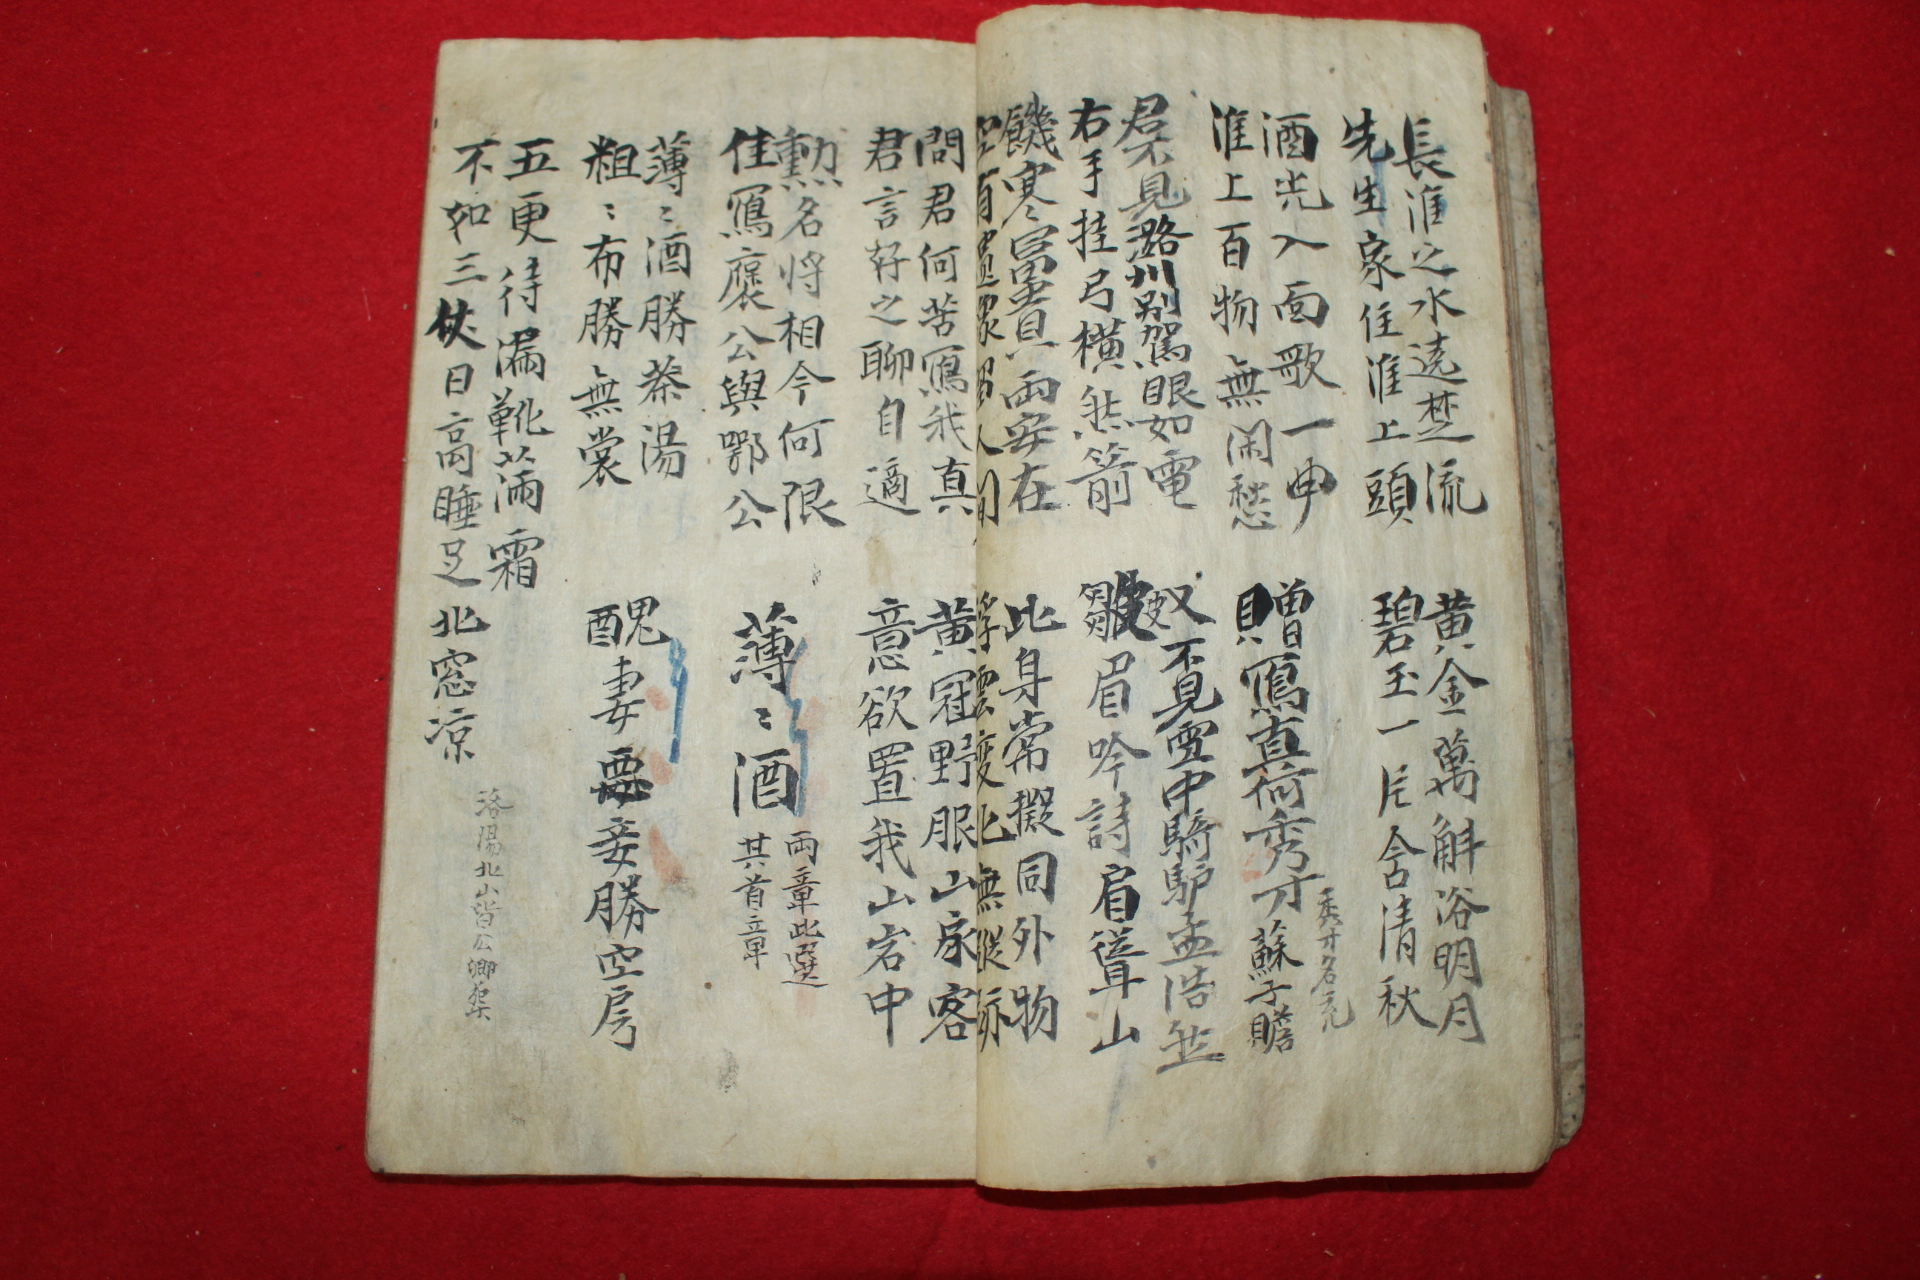 長淮之水遶楚流　黄金萬斛浴明月
先生家住淮上頭　碧玉一片含清秋
酒光入面歌一申
淮上百物無閑愁
贈寫真何秀才　蘇子瞻
秀才名充
君不見潞州別駕眼如電　又不見雪中騎驢孟浩然
右手挂弓橫然箭　皺眉吟詩肩聳山
饑寒富貴兩安在　此身常擬同外物
空有遺像留人間　浮雲變化無蹤跡
問君何苦寫我真　黄冠野服山家客
君言好之聊自適　意欲置我山岩中
勲名將相今何限
佳寫褒公與鄂公
薄〻酒
兩章此選
其首章
薄〻酒勝茶湯　醜妻惡妾勝空房
粗〻布勝無裳
五更待漏靴滿霜
不如三伏日高睡足北窓凉
洛陽北山皆公卿葬